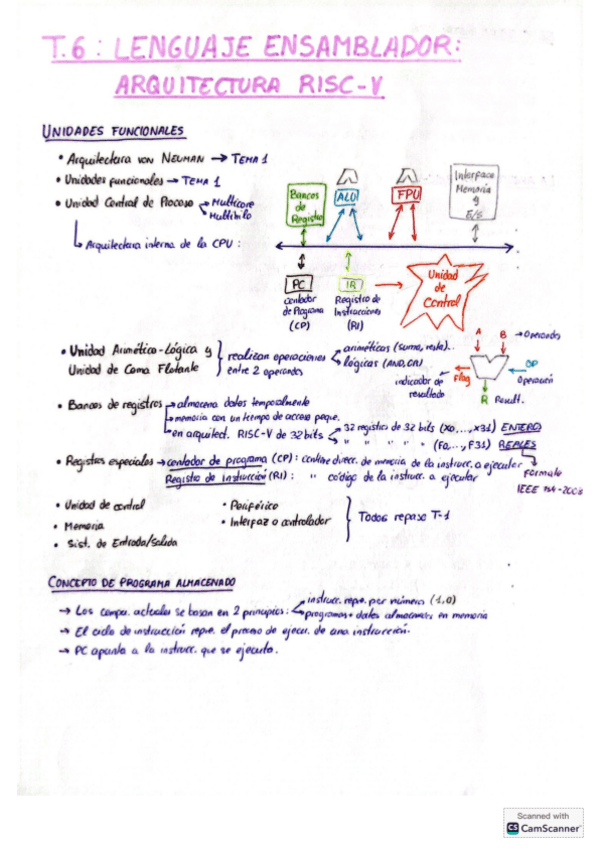 T.6: LENGUAJE ENSAMBLADOR:
ARQUITECTURA RISC-V
UNIDADES FUNCIONALES
• Arquitectura von NEUMAN → TEMA 1
• Unidades funcionales → TEMA 1
• Unidad Central de Proceso → Multicore
Multihilo
↳ Arquitectura interna de la CPU:
Bancos de Registro
ALU
FPU
Interface Memoria y E/S
PC
Contador de Programa (CP)
IR
Registro de Instrucciones (RI)
Unidad de Control
• Unidad Aritmético-Lógica y
Unidad de Coma Flotante
realizan operaciones
entre 2 operandos
aritméticas (suma, resta)...
lógicas (AND, OR)
A B → Operandos
OP
Operación
Flag
indicador de resultado
R Result.
• Bancos de registros → almacena datos temporalmente
→ memoria con un tiempo de acceso peque.
→ en arquitect. RISC-V de 32 bits
32 registros de 32 bits (X0,...,X31) ENTERO
" " " " (F0,..., F31) REALES
Formato
IEEE 754-2008
• Registros especiales → contador de programa (CP): contiene direcc. de memoria de la instrucc. a ejecutar
Registro de instrucción (RI): " código de la instrucc. a ejecutar
• Unidad de control
• Memoria
• Sist. de Entrada/Salida
• Periférico
• Interfaz o controlador
Todos repaso T-1
CONCEPTO DE PROGRAMA ALMACENADO
→ Los compu. actuales se basan en 2 principios:
instrucc. repre. por número (1,0)
programas + datos almacenats en memoria
→ El ciclo de instrucción repre. el proceso de ejecuc. de una instrucción.
→ PC apunta a la instrucc. que se ejecuta.
Scanned with
CS CamScanner